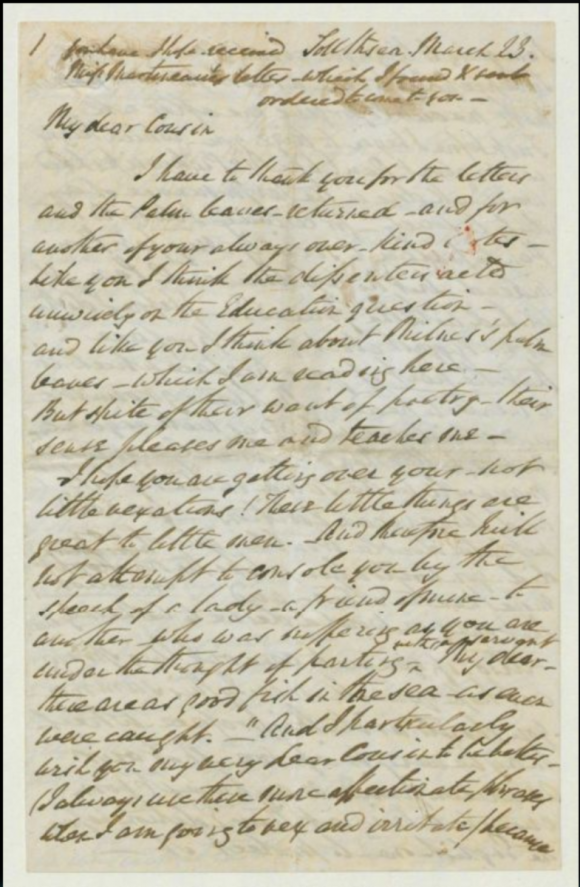 1 you have I hope received Tollitson. March 23.
Miss Martineau's letter - which I found & sent
ordered to wait for -
My dear Cousin
I have to thank you for the letters
and the Palm leaves - returned - and for
another of your always over-kind -
like you I think the dissenters acted
unwisely on the Education question -
and like you I think about Milnes's palm
leaves - which I am reading here -
But spite of their want of poetry - their
sense pleases me and teaches me -
I hope you are getting over your - not
little vexations! These little things are
great to little men. - And therefore I will
not attempt to console you by the
speech of a lady - a friend of mine - to
another who was suffering as you are
under the thought of parting with a servant - "My dear -
there are as good fish in the sea as ever
were caught. -" And I particularly
wish you my very dear Cousin to be better -
(I always use these more affectionate phrases
when I am going to vex and irritate) because